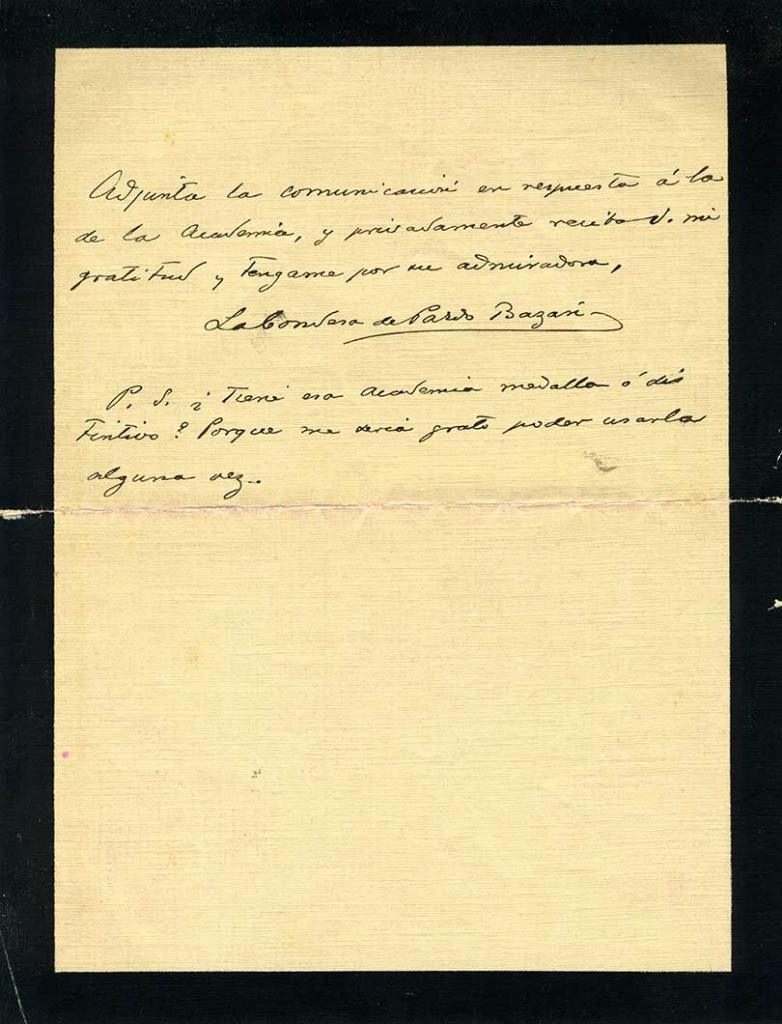 Adjunta la comunicación en respuesta á la
de la Academia, y privadamente reciba V. mi
gratitud y téngame por su admiradora,
La Condesa de Pardo Bazán
P. S. ¿Tiene esa Academia medalla ó dis
tintivo? Porque me sería grato poder usarla
alguna vez.